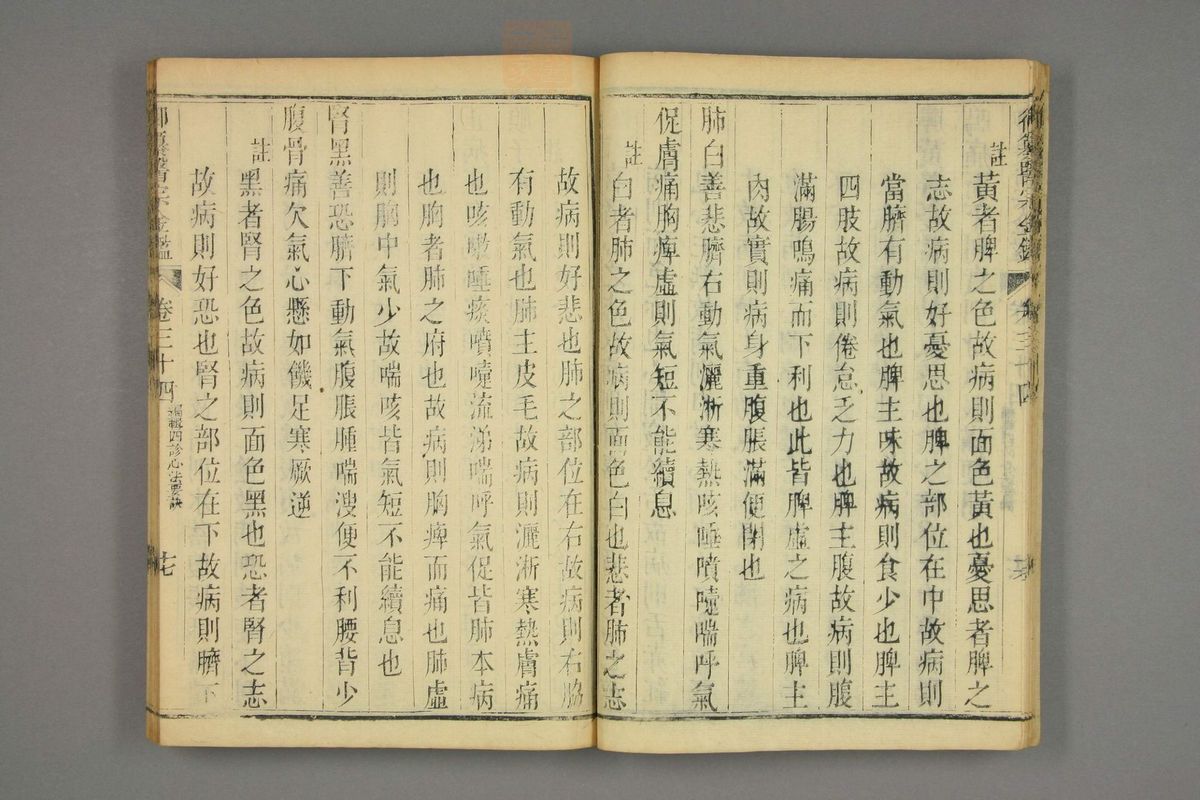 御纂醫宗金鑑
卷三十四
註黃者脾之色故病則面色黃也憂思者脾之
志故病則好憂思也脾之部位在中故病則
當臍有動氣也脾主味故病則食少也脾主
四肢故病則倦怠乏力也脾主腹故病則腹
滿腸鳴痛而下利也此皆脾虛之病也脾主
肉故實則病身重腹脹滿便閉也
肺白善悲臍右動氣灑淅寒熱咳唾噴嚏喘呼氣
促膚痛胸痺虛則氣短不能續息
註白者肺之色故病則面色白也悲者肺之志
故病則好悲也肺之部位在右故病則右脇
有動氣也肺主皮毛故病則灑淅寒熱膚痛
也咳嗽唾痰噴嚏流涕喘呼氣促皆肺本病
也胸者肺之府也故病則胸痺而痛也肺虛
則胸中氣少故喘咳皆氣短不能續息也
腎黑善恐臍下動氣腹脹腫喘溲便不利腰背少
腹骨痛欠氣心懸如饑足寒厥逆
註黑者腎之色故病則面色黑也恐者腎之志
故病則好恐也腎之部位在下故病則臍下
御纂醫宗金鑑
卷三十四
編輯四診心法要訣
七